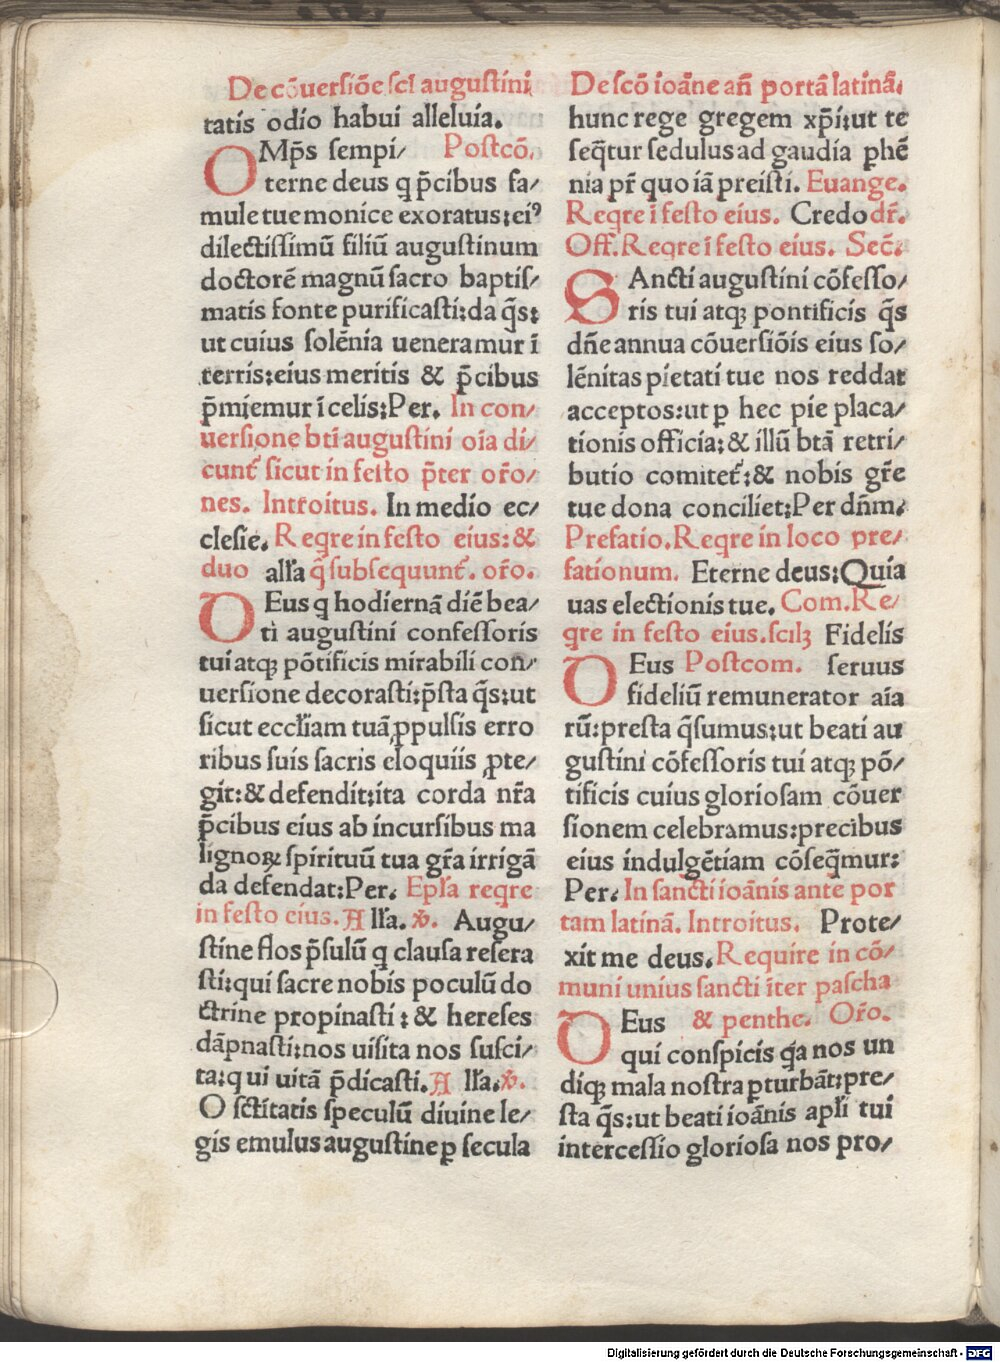 De cōuersiōe scī augustini
tatis odio habui alleluia.
OMp̄s sempi/ Postcō.
terne deus q p̄cibus fa/
mule tue monice exoratus: ei⁹
dilectissimū filiū augustinum
doctorē magnū sacro baptis/
matis fonte purificasti: da q̄s:
ut cuius solēnia ueneramur ī
terris: eius meritis & p̄cibus
p̄miemur ī celis: Per. In con/
uersione btī augustini oīa di/
cunt̄ sicut in festo p̄ter or̄o/
nes. Introitus. In medio ec/
clesie. Reqre in festo eius: &
duo all̄a q̄ subsequunt̄. or̄o.
DEus q hodiernā diē bea/
ti augustini confessoris
tui atqꝫ pōtificis mirabili con/
uersione decorasti: p̄sta q̄s: ut
sicut eccl̄iam tuā ꝓpulsis erro
ribus suis sacris eloquiis ꝓte/
git: & defendit: ita corda nr̄a
p̄cibus eius ab incursibus ma
lignoꝝ spirituū tua gr̄a irrigā
da defendat: Per. Epl̄a reqre
in festo eius. All̄a. ꝟ. Augu/
stine flos p̄sulū q clausa resera
sti: qui sacre nobis poculū do
ctrine propinasti: & hereses
dāpnasti: nos uisita nos susci/
ta: qui uitā p̄dicasti. All̄a. ꝟ.
O sctītatis speculū diuine le/
gis emulus augustine ꝑ secula
De scō ioāne añ portā latinā.
hunc rege gregem xp̄i: ut te
seq̄tur sedulus ad gaudia phē
nia pr̄ quo iā preisti. Euange.
Reqre ī festo eius. Credo dr̄.
Off̄. Reqre ī festo eius. Sec̄.
SAncti augustini cōfesso/
ris tui atqꝫ pontificis q̄s
dn̄e annua cōuersiōis eius so/
lēnitas pietati tue nos reddat
acceptos: ut ꝑ hec pie placa/
tionis officia: & illū btā retri/
butio comitet̄: & nobis gr̄e
tue dona conciliet: Per dn̄m.
Prefatio. Reqre in loco pre/
fationum. Eterne deus: Quia
uas electionis tue. Com. Re/
qre in festo eius. scilꝫ Fidelis
DEus Postcom. seruus
fideliū remunerator aīa
rū: presta q̄sumus: ut beati au
gustini cōfessoris tui atqꝫ pō/
tificis cuius gloriosam cōuer
sionem celebramus: precibus
eius indulgētiam cōseq̄mur:
Per. In sancti ioānis ante por
tam latinā. Introitus. Prote/
xit me deus. Require in cō/
muni unius sancti īter pascha
DEus & penthe. Or̄o.
qui conspicis q̄a nos un
diqꝫ mala nostra ꝑturbāt: pre/
sta q̄s: ut beati ioānis apl̄i tui
intercessio gloriosa nos pro/
Digitalisierung gefördert durch die Deutsche Forschungsgemeinschaft - DFG